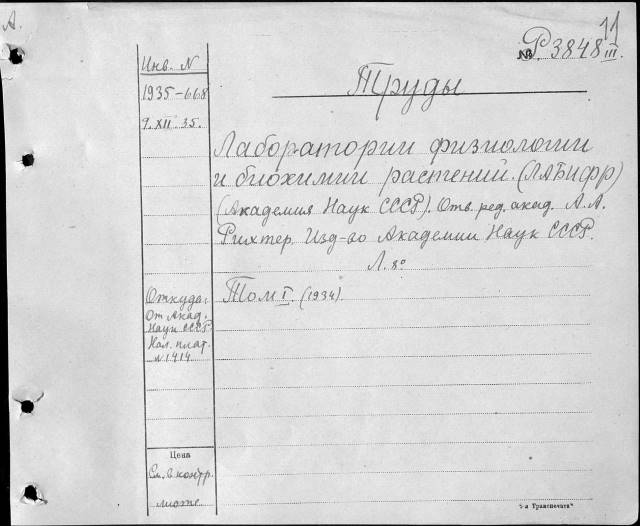 А.
11
№ Р 3848 III
Труды
Инв. N
1935-668
9.XII.35.
Лаборатории физиологии
и биохимии растений. (ЛАБИФР)
(Академия Наук СССР). Отв. ред. акад. А. А.
Рихтер. Изд-во Академии Наук СССР.
Л. 8°
Том I. (1934).
Откуда:
От Акад.
Наук СССР
Нал. плат.
N 1414
Цена
См. в контр.
листе
Транспечати"